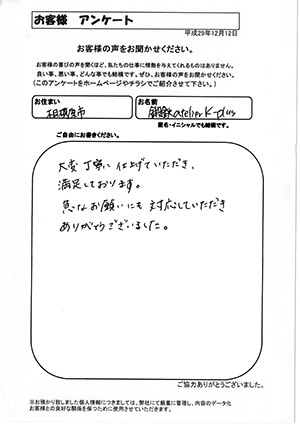 お客様 アンケート
平成29年12月12日
お客様の声をお聞かせください。
お客様の喜びの声を聞くほど、私たちの仕事に情熱を与えてくれるものはありません。
良い事、悪い事、どんな事でも結構です。ぜひ、お客様の声をお聞かせください。
(このアンケートをホームページやチラシでご紹介させて下さい。)
お住まい
お名前
相模原市
atelier K-plus
匿名・イニシャルでも結構です。
ご自由にお書きください。
大変丁寧に仕上げていただき、
満足しております。
急なお願いにも対応していただき
ありがとうございました。
ご協力ありがとうございました。
※お預かり致しました個人情報につきましては、弊社にて厳重に管理し、内容のデータ化
お客様との良好な関係を保つために使用させていただきます。